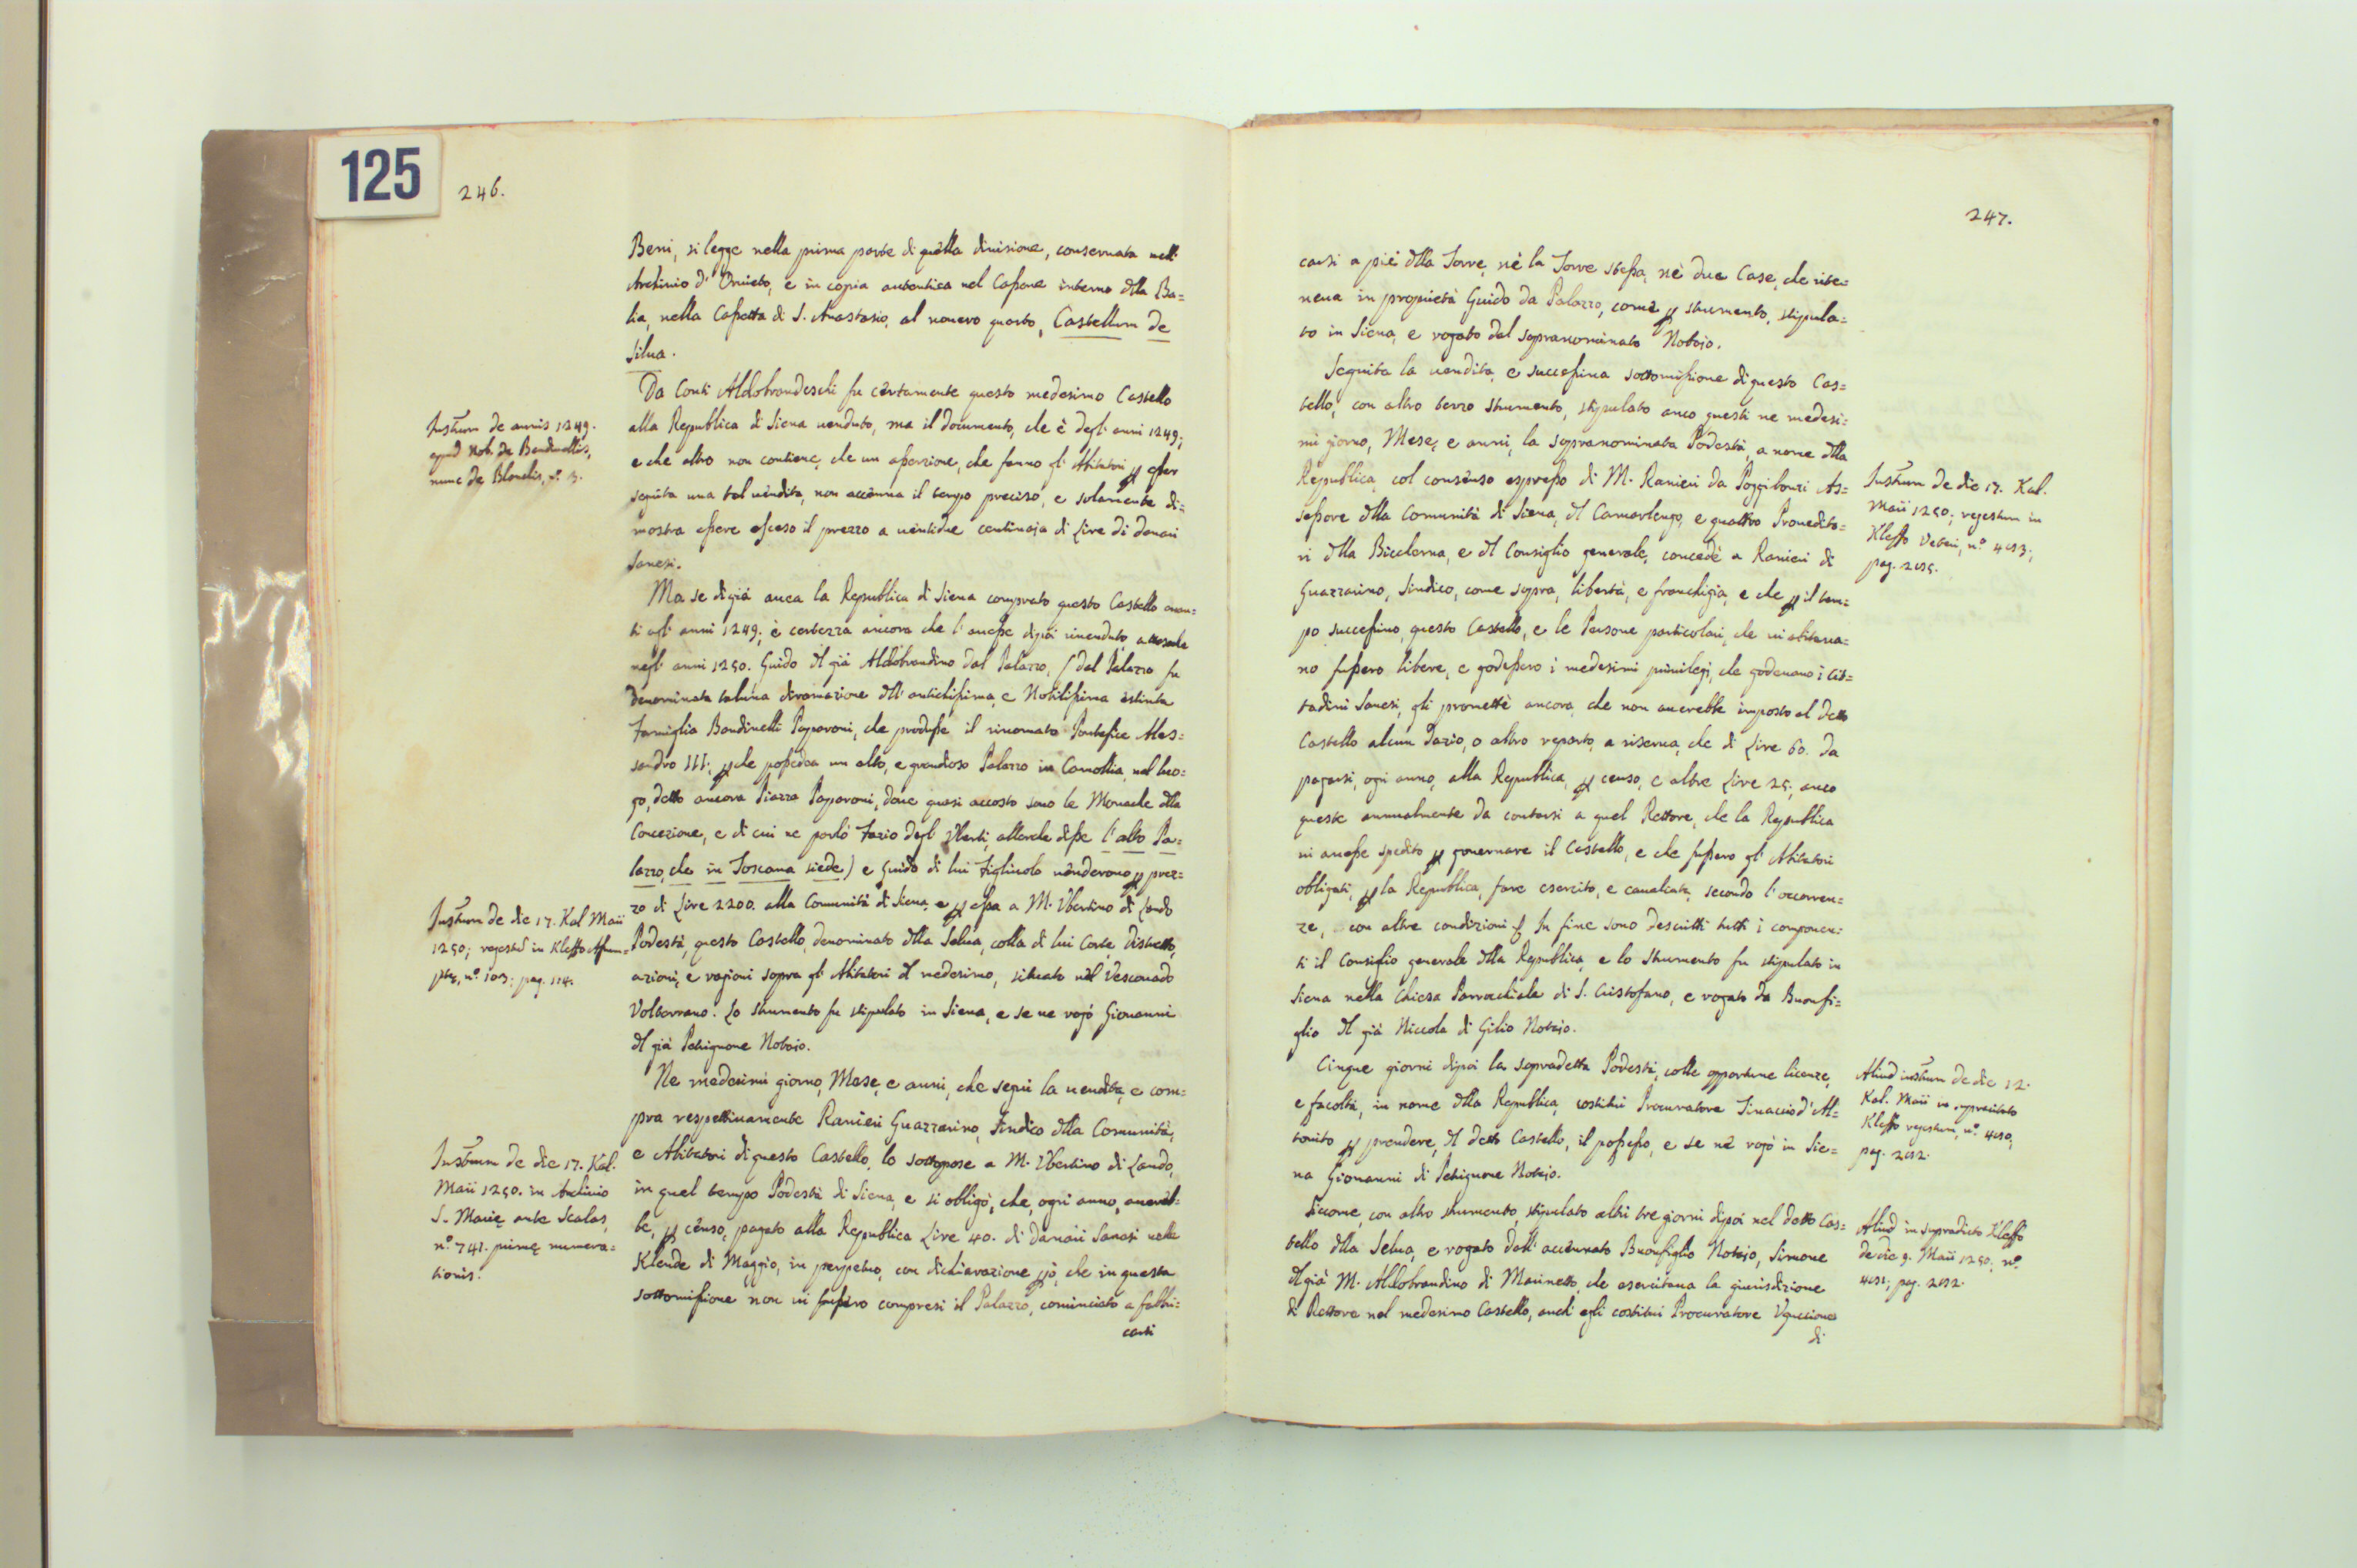 125
246.
Beni, si legge nella prima parte di quella divisione, conservata nell'
Archivio d'Orvieto, e in copia autentica nel Cassone interno della Ba=
lia, nella Cassetta di S. Anastasio, al numero quarto, Castellum de
Silva.
Da Conti Aldobrandeschi fu certamente questo medesimo Castello
alla Republica di Siena venduto, ma il documento, che è degl'anni 1249;
e che altro non contiene, che un asserzione, che fanno gl'Abitatori per esser
seguita una tal vendita, non accenna il tempo preciso, e solamente di=
mostra essere asceso il prezzo a ventidue centinaja di Lire di denari
Sanesi.
Instrum de annis 1249.
apud Nob. de Bandinellis,
nunc de Blanchis, n.º 3.
Ma se di già avea la Republica di Siena comprato questo Castello avan=
ti agl'anni 1249; è certezza ancora che l'avesse dipoi rivenduto, attesoche
negl'anni 1250. Guido del già Aldobrandino dal Palazzo, (dal Palazzo fu
denominata taluna diramazione dell'antichissima, e Nobilissima estinta
Famiglia Bandinelli Paparoni, che produsse il rinomato Pontefice Ales=
sandro III; perche possedea un alto, e grandioso Palazzo in Camollia, nel luo=
go, detto ancora Piazza Paparoni, dove quasi accosto sono le Monache della
Concezione, e di cui ne parlò Fazio degl'Uberti, allorche disse l'alto Pa=
lazzo, che in Toscana siede) e Guido di lui Figliuolo venderono per prez=
zo di Lire 2200. alla Comunità di Siena, e per essa a M. Ubertino di Lando
Podestà, questo Castello, denominato della Selva, colla di lui Corte, Distretto,
azioni, e ragioni sopra gl'Abitatori del medesimo, situato nel Vescovado
Volterrano. Lo strumento fu stipulato in Siena, e se ne rogò Giovanni
del già Pchignone Notaio.
Instrum de die 17. Kal Maii
1250; regestũ in Kleffo Assum=
ptę, n.º 103; pag. 114.
Ne medesimi giorno, Mese, e anni, che seguì la vendita, e com=
pra respettivamente Ranieri Guazzarino, Sindico della Comunità,
e Abitatori di questo Castello, lo sottopose a M. Ubertino di Lando,
in quel tempo Podestà di Siena, e si obligò, che, ogni anno, avereb=
be, per censo, pagato alla Republica Lire 40. di danari Sanesi nelle
Klende di Maggio, in perpetuo, con dichiarazione però, che in questa
sottomissione non vi fussero compresi il Palazzo, cominciato a fabbri=
carsi
Instrum de die 17. Kal.
Maii 1250. in Archivio
S. Marię ante Scalas,
n.º 741. primę numera=
tionis.
247.
carsi a piè della Torre, nè la Torre stessa, nè due Case, che rite=
neva in proprietà Guido da Palazzo, come per strumento, stipula=
to in Siena, e rogato dal sopranominato Notaio.
Seguita la vendita, e successiva sottomissione di questo Cas=
tello, con altro terzo strumento, stipulato anco questi ne medesi=
mi giorno, Mese, e anni, la sopranominata Podestà, a nome della
Republica, col consenso espresso di M. Ranieri da Poggibonzi As=
sessore della Comunità di Siena, del Camarlengo, e quattro Provedito=
ri della Biccherna, e del Consiglio generale, concedè a Ranieri di
Guazzarino, Sindico, come sopra, libertà, e franchigia, e che per il tem=
po successivo, questo Castello, e le Persone particolari, che vi abitava=
no fussero libere, e godessero i medesimi privilegj, che godevano i Cit=
tadini Sanesi, gli promettè ancora, che non averebbe imposto al detto
Castello alcun Dazio, o altro reparto, a riserva, che di Lire 60. da
pagarsi, ogni anno, alla Republica, per censo, e altre Lire 25; anco
queste annualmente da contarsi a quel Rettore, che la Republica
vi avesse spedito per governare il Castello, e che fussero gl'Abitatori
obligati, per la Republica, fare esercito, e cavalcata, secondo l'occorren=
ze, con altre condizioni. In fine sono descritti tutti i componen=
ti il Consiglio generale della Republica, e lo strumento fu stipulato in
Siena nella Chiesa Parrochiale di S. Cristofano, e rogato da Buonfi=
glio del già Niccola di Gilio Notaio.
Instrum de die 17. Kal.
Maii 1250; regestum in
Kleffo Veteri, n.º 453;
pag. 255.
Cinque giorni dipoi la sopradetta Podestà, colle opportune licenze,
e facoltà, in nome della Republica, costituì Procuratore Tinaccio d'Al=
tonito per prendere, del detto Castello, il possesso, e se ne rogò in Sie=
na Giovanni di Pchignone Notaio.
Aliud instrum de die 12.
Kal. Maii in supracitato
Kleffo regestum, n.º 450;
pag. 252.
Siccome, con altro strumento, stipulato altri tre giorni dipoi nel detto Cas=
tello della Selva, e rogato dall'accennato Buonfiglio Notaio, Simone
del già M. Aldobrandino di Marinetto, che esercitava la giurisdizione
di Rettore nel medesimo Castello, anch'egli costituì Procuratore Uguccione
di
Aliud in supradicto Kleffo
de die 9. Maii 1250; n.º
451; pag. 252.